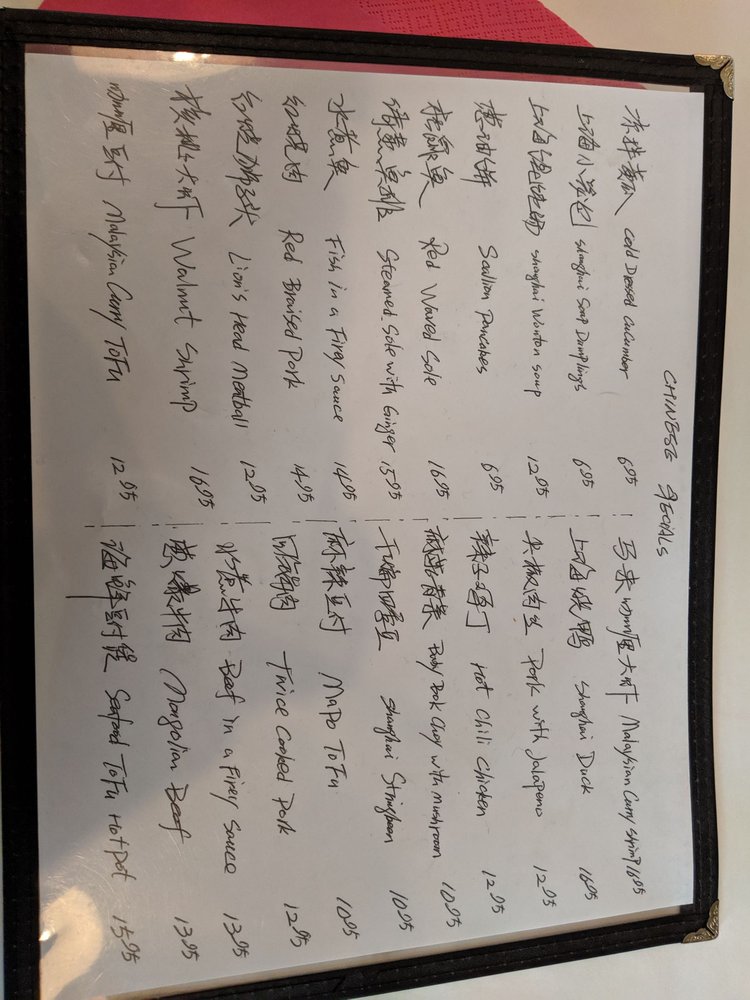 CHINESE SPECIALS
凉拌黄瓜 Cold Dessed Cucumber 6.95
上海小笼包 Shanghai Soap Dumplings 6.95
上海 Shanghai Wonton Soup 12.95
葱油饼 Scallion Pancakes 6.95
松鼠鱼 Red Waved Sole 16.95
Steamed Sole with Ginger 15.95
水煮鱼 Fish in a Firey Sauce 14.95
红烧肉 Red Braised Pork 14.95
红烧狮子头 Lion's Head Meatball 12.95
核桃大虾 Walnut Shrimp 16.95
咖喱豆付 Malaysian Curry ToFu 12.95
马来咖喱大虾 Malaysian Curry Shrimp 16.95
上海 鸭 Shanghai Duck 16.95
尖椒肉丝 Pork with Jalapeno 12.95
辣子鸡丁 Hot Chili Chicken 12.95
蘑菇青菜 Baby Book Choy with mushroom 10.95
干煸四季豆 Shanghai Stringbean 10.95
麻辣豆付 MaPo ToFu 10.95
回锅肉 Twice Cooked Pork 12.95
水煮牛肉 Beef in a Firey Sauce 13.95
葱爆牛肉 Mongolian Beef 13.95
海鲜豆付煲 Seafood ToFu HotPot 15.95